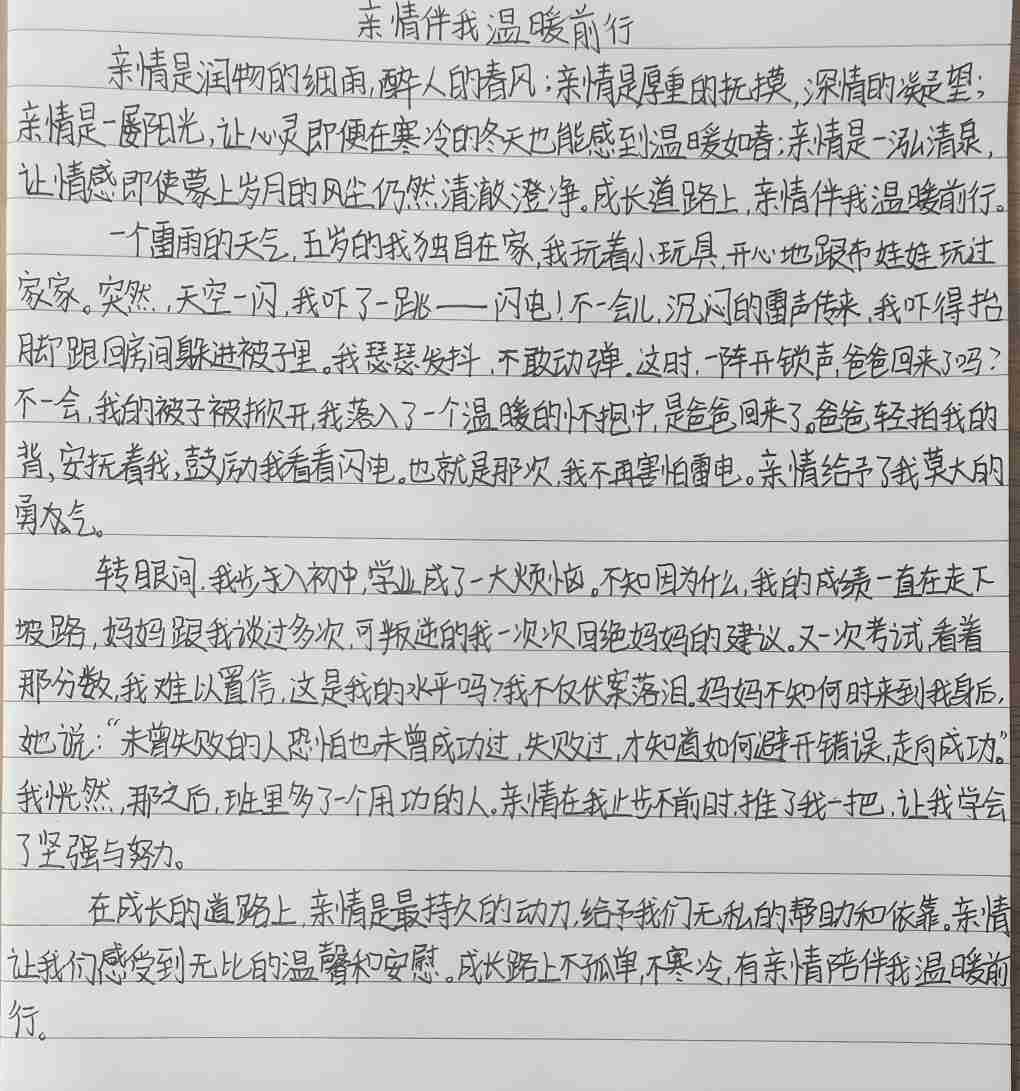 亲情伴我温暖前行
亲情是润物的细雨,醉人的春风;亲情是厚重的抚摸,深情的凝望;
亲情是一屡阳光,让心灵即便在寒冷的冬天也能感到温暖如春;亲情是一泓清泉,
让情感即使蒙上岁月的风尘仍然清澈澄净。成长道路上,亲情伴我温暖前行。
一个雷雨的天气,五岁的我独自在家,我玩着小玩具,开心地跟布娃娃玩过
家家。突然,天空一闪,我吓了一跳——闪电!不一会儿,沉闷的雷声传来,我吓得抬
脚跟回房间躲进被子里。我瑟瑟发抖,不敢动弹。这时,一阵开锁声,爸爸回来了吗?
不一会,我的被子被掀开,我落入了一个温暖的怀抱中,是爸爸回来了。爸爸轻拍我的
背,安抚着我,鼓励我看看闪电。也就是那次,我不再害怕雷电。亲情给予了我莫大的
勇气。
转眼间,我步入初中,学业成了一大烦恼。不知因为什么,我的成绩一直在走下
坡路,妈妈跟我谈过多次,可叛逆的我一次次回绝妈妈的建议。又一次考试,看着
那分数,我难以置信,这是我的水平吗?我不仅伏案落泪。妈妈不知何时来到我身后,
她说:“未曾失败的人恐怕也未曾成功过,失败过,才知道如何避开错误,走向成功。”
我恍然,那之后,班里多了一个用功的人。亲情在我止步不前时,推了我一把,让我学会
了坚强与努力。
在成长的道路上,亲情是最持久的动力,给予我们无私的帮助和依靠。亲情
让我们感受到无比的温馨和安慰。成长路上不孤单,不寒冷,有亲情陪伴我温暖前
行。